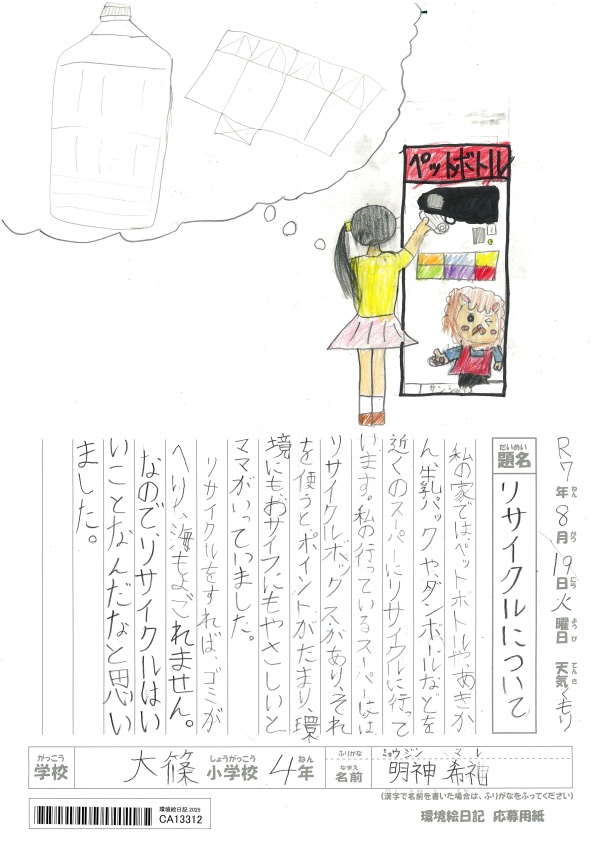 ペットボトル
R7年8月19日火曜日 天気くもり
ねん がつ にち ようび てんき
だいめい
題名
リサイクルについて
私の家ではペットボトルや、あきか
ん、牛乳パックや、ダンボールなどを
近くのスーパーにリサイクルに行って
います。私の行っているスーパーには
リサイクルボックスがあり、それ
を使うとポイントがたまり、環
境にも、おサイフにもやさしいと
ママがいっていました。
リサイクルをすれば、ゴミが
へり、海もよごれません。
なので、リサイクルはい
いことなんだなと思い
ました。
がっこう
学校
大篠
しょうがっこう
小学校
4
ねん
年
ふりがな
なまえ
名前
ミョウジン マレ
明神 希祐
(漢字で名前を書いた場合は、ふりがなをふってください)
環境絵日記 2025
CA13312
環境絵日記 応募用紙